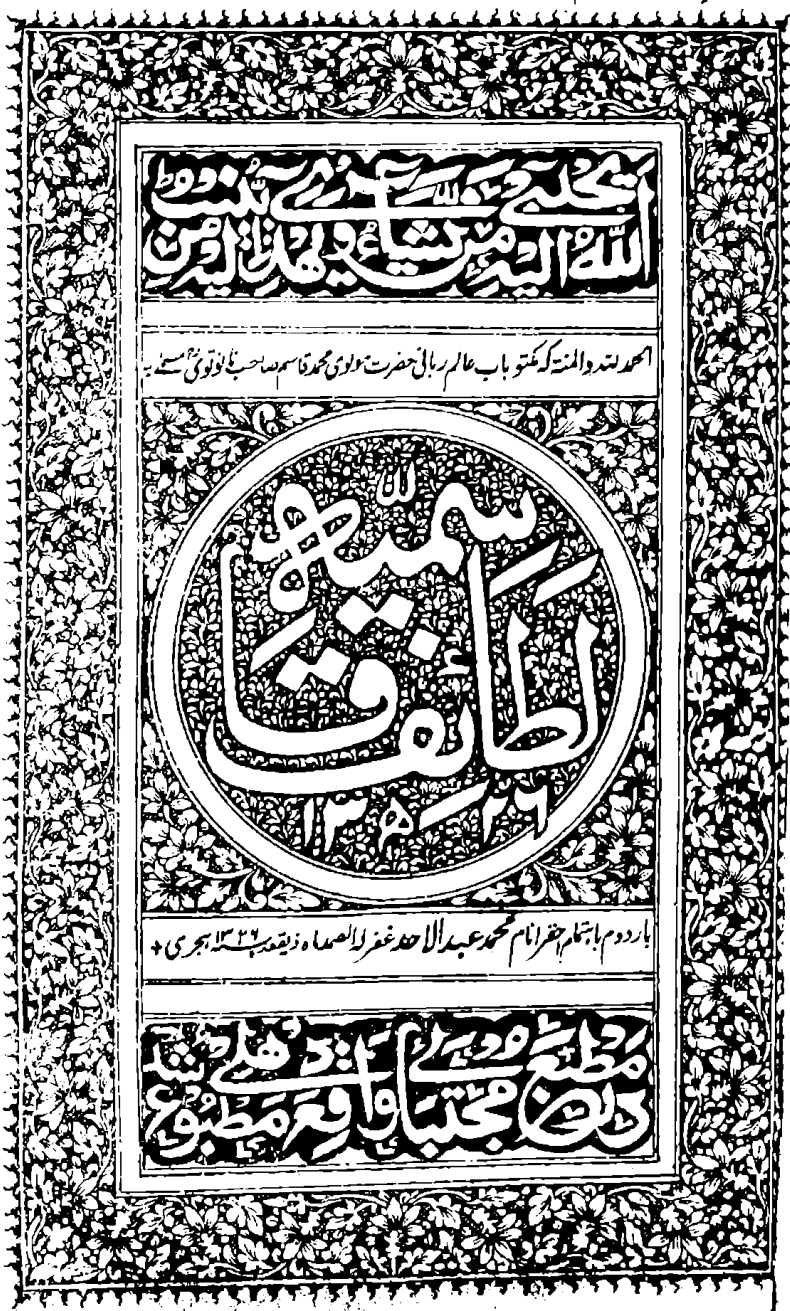 اَللّٰهُ يَجْتَبِيْ اِلَيْهِ مَنْ يَّشَآءُ وَيَهْدِيْ اِلَيْهِ مَنْ يُّنِيْبُ ط
الحمد لله والمنة که مکتوبات عالم ربانی حضرت مولوی محمد قاسم صاحب نانوتوی
لَطَائِفِ قَاسِمِیَّه
۱۳۲۶ھ
بار دوم باہتمام احقر انام محمد عبد الاحد غفرلہ الصمد ماہ ذیقعدہ ۱۳۲۶ ہجری +
در مطبع مجتبائی واقع دہلی مطبوع شد